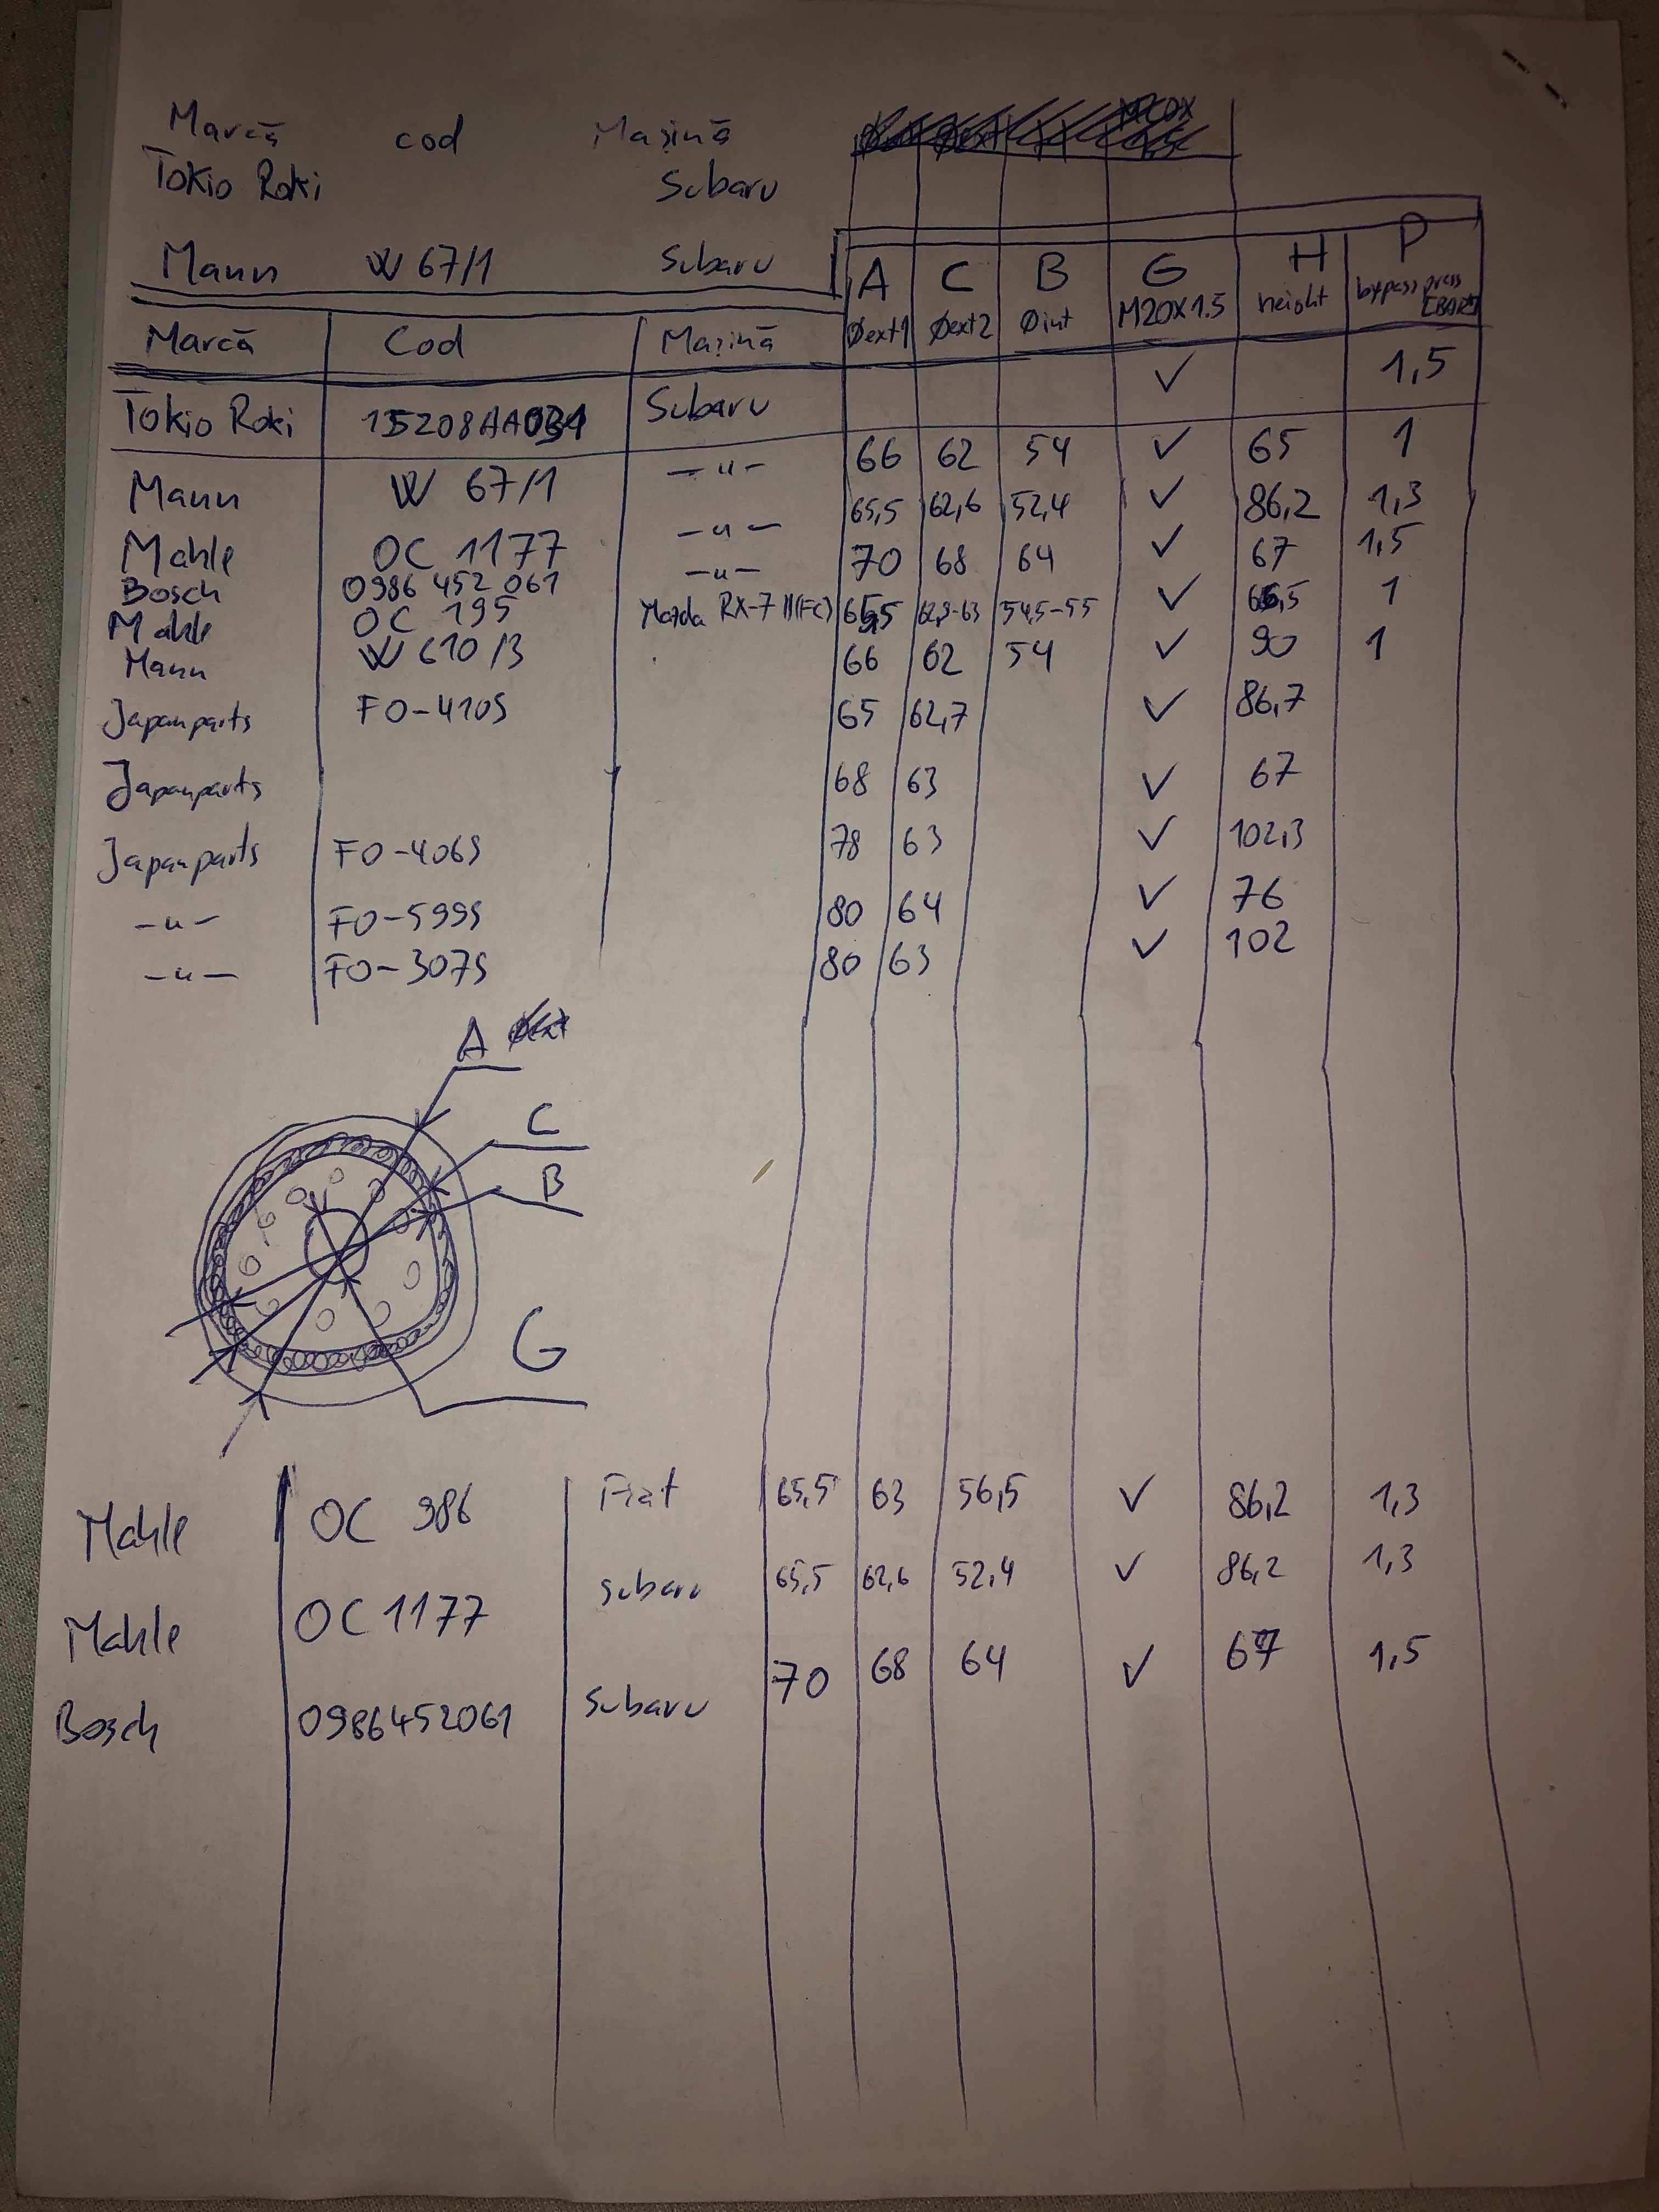 Marcă cod Mașină
Tokio Roki Subaru
Mann W 67/1 Subaru
A C B G H P
Øext1 Øext2 Øint M20X1.5 height bypass press [BAR]
Marcă Cod Mașină
Tokio Roki 15208AA031 Subaru ✓ 1,5
Mann W 67/1 -u- 66 62 54 ✓ 65 1
Mahle OC 1177 -u- 65,5 62,6 52,4 ✓ 86,2 1,3
Bosch 0986 452 061 -u- 70 68 64 ✓ 67 1,5
Mahle OC 195 Mazda RX-7 II(FC) 65,5 62,9-63 54,5-55 ✓ 66,5 1
Mann W 610/3 66 62 54 ✓ 90 1
Japanparts FO-410S 65 62,7 ✓ 86,7
Japanparts 68 63 ✓ 67
Japanparts FO-406S 78 63 ✓ 102,3
-u- FO-599S 80 64 ✓ 76
-u- FO-307S 80 63 ✓ 102
A
C
B
G
Mahle OC 986 Fiat 65,5 63 56,5 ✓ 86,2 1,3
Mahle OC 1177 Subaru 65,5 62,6 52,4 ✓ 86,2 1,3
Bosch 0986452061 Subaru 70 68 64 ✓ 67 1,5